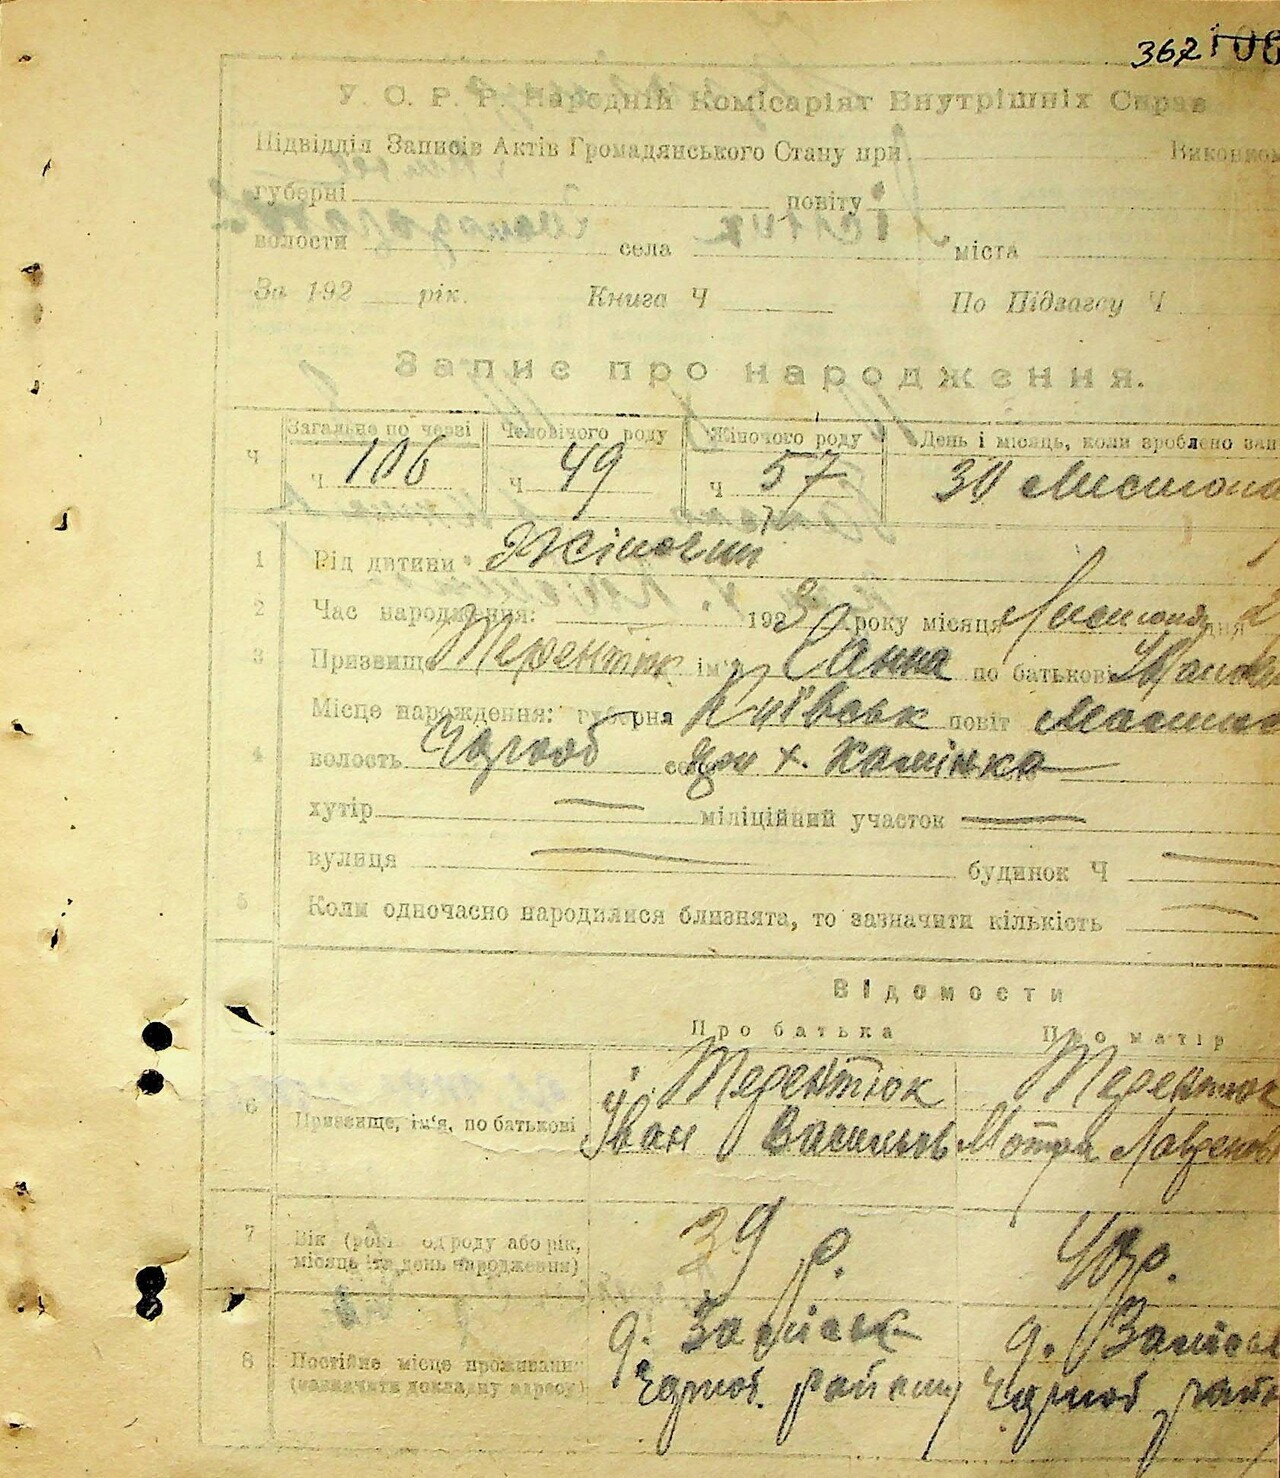 367 106
У. С. Р. Р. Народній Комісаріят Внутрішніх Справ
Підвідділ Записів Актів Громадянського Стану при Виконком
губерні повіту
волости села міста
За 192 рік. Книга Ч По Підзагсу Ч
Запис про народження.
Загальне по черзі Чоловічого роду Жіночого роду День і місяць, коли зроблено зап
Ч Ч 106 Ч 49 Ч 57 30 Листопад
1 Рід дитини Жіночий
2 Час народження: 1923 року місяця Листопад дня 2
3 Призвище Терентюк ім'я Ганна по батькові Іванов
Місце народження: губерня Київськ повіт
4 волость х. Камінка
хутір — міліційний участок —
вулиця — будинок Ч —
5 Коли одночасно народилися близнята, то зазначити кількість —
Відомости
Про батька Про матір
6 Призвище, ім'я, по батькові Терентюк Терентюк
Іван Васильов Мотря Лавренов
7 Вік (років од роду або рік, місяць та день народження) 39 р. 40 р.
8 Постійне місце проживання (зазначити докладну адресу)
району